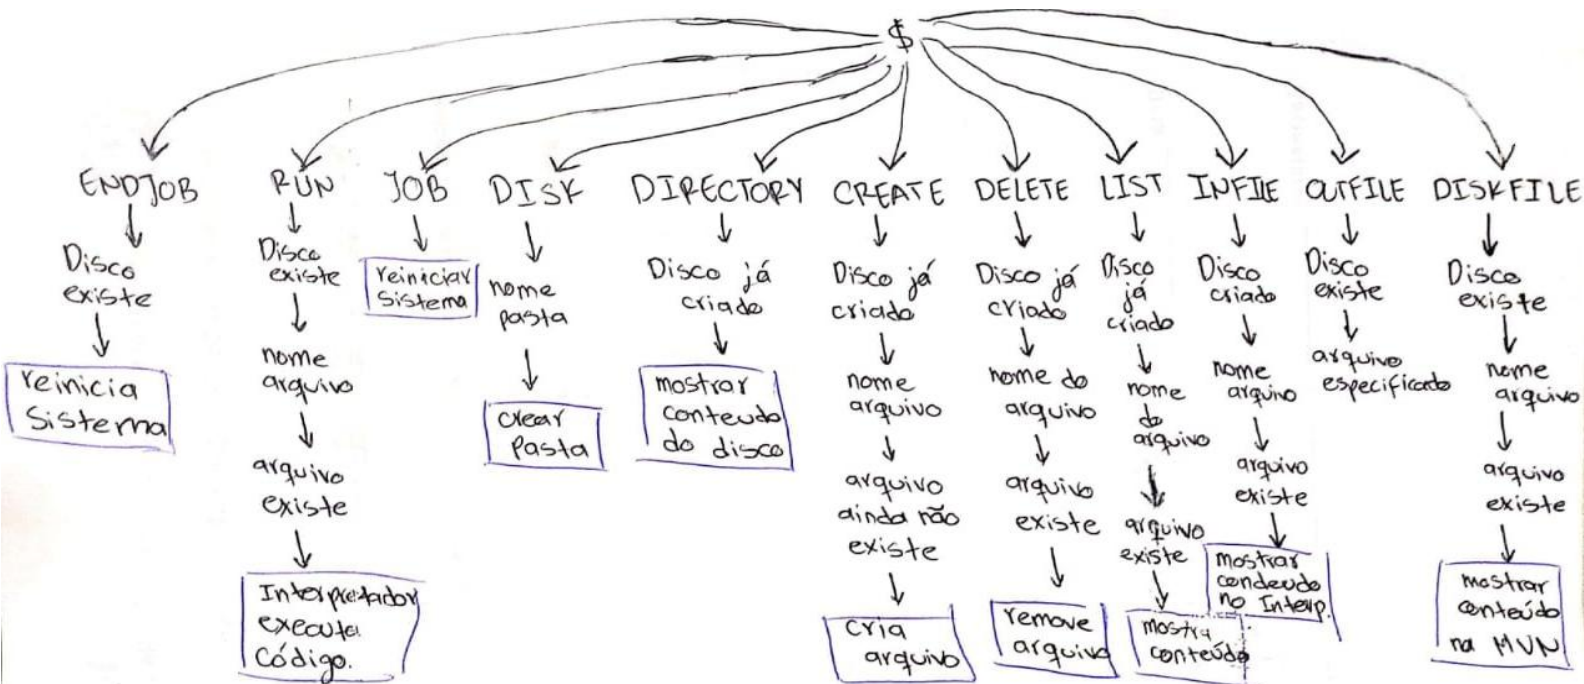 $
ENDJOB
Disco
existe
reinicia
Sistema
RUN
Disco
existe
nome
arquivo
arquivo
existe
Interpretador
executa
Código.
JOB
reiniciar
Sistema
DISK
nome
pasta
crear
Pasta
DIRECTORY
Disco já
criado
mostrar
conteudo
do disco
CREATE
Disco já
criado
nome
arquivo
arquivo
ainda não
existe
cria
arquivo
DELETE
Disco já
criado
nome do
arquivo
arquivo
existe
remove
arquivo
LIST
Disco
já
criado
nome
do
arquivo
arquivo
existe
mostra
conteúdo
INFILE
Disco
criado
nome
arquivo
arquivo
existe
mostrar
condeudo
no Interp.
OUTFILE
Disco
existe
arquivo
especificado
DISKFILE
Disco
existe
nome
arquivo
arquivo
existe
mostrar
conteúdo
na MVN